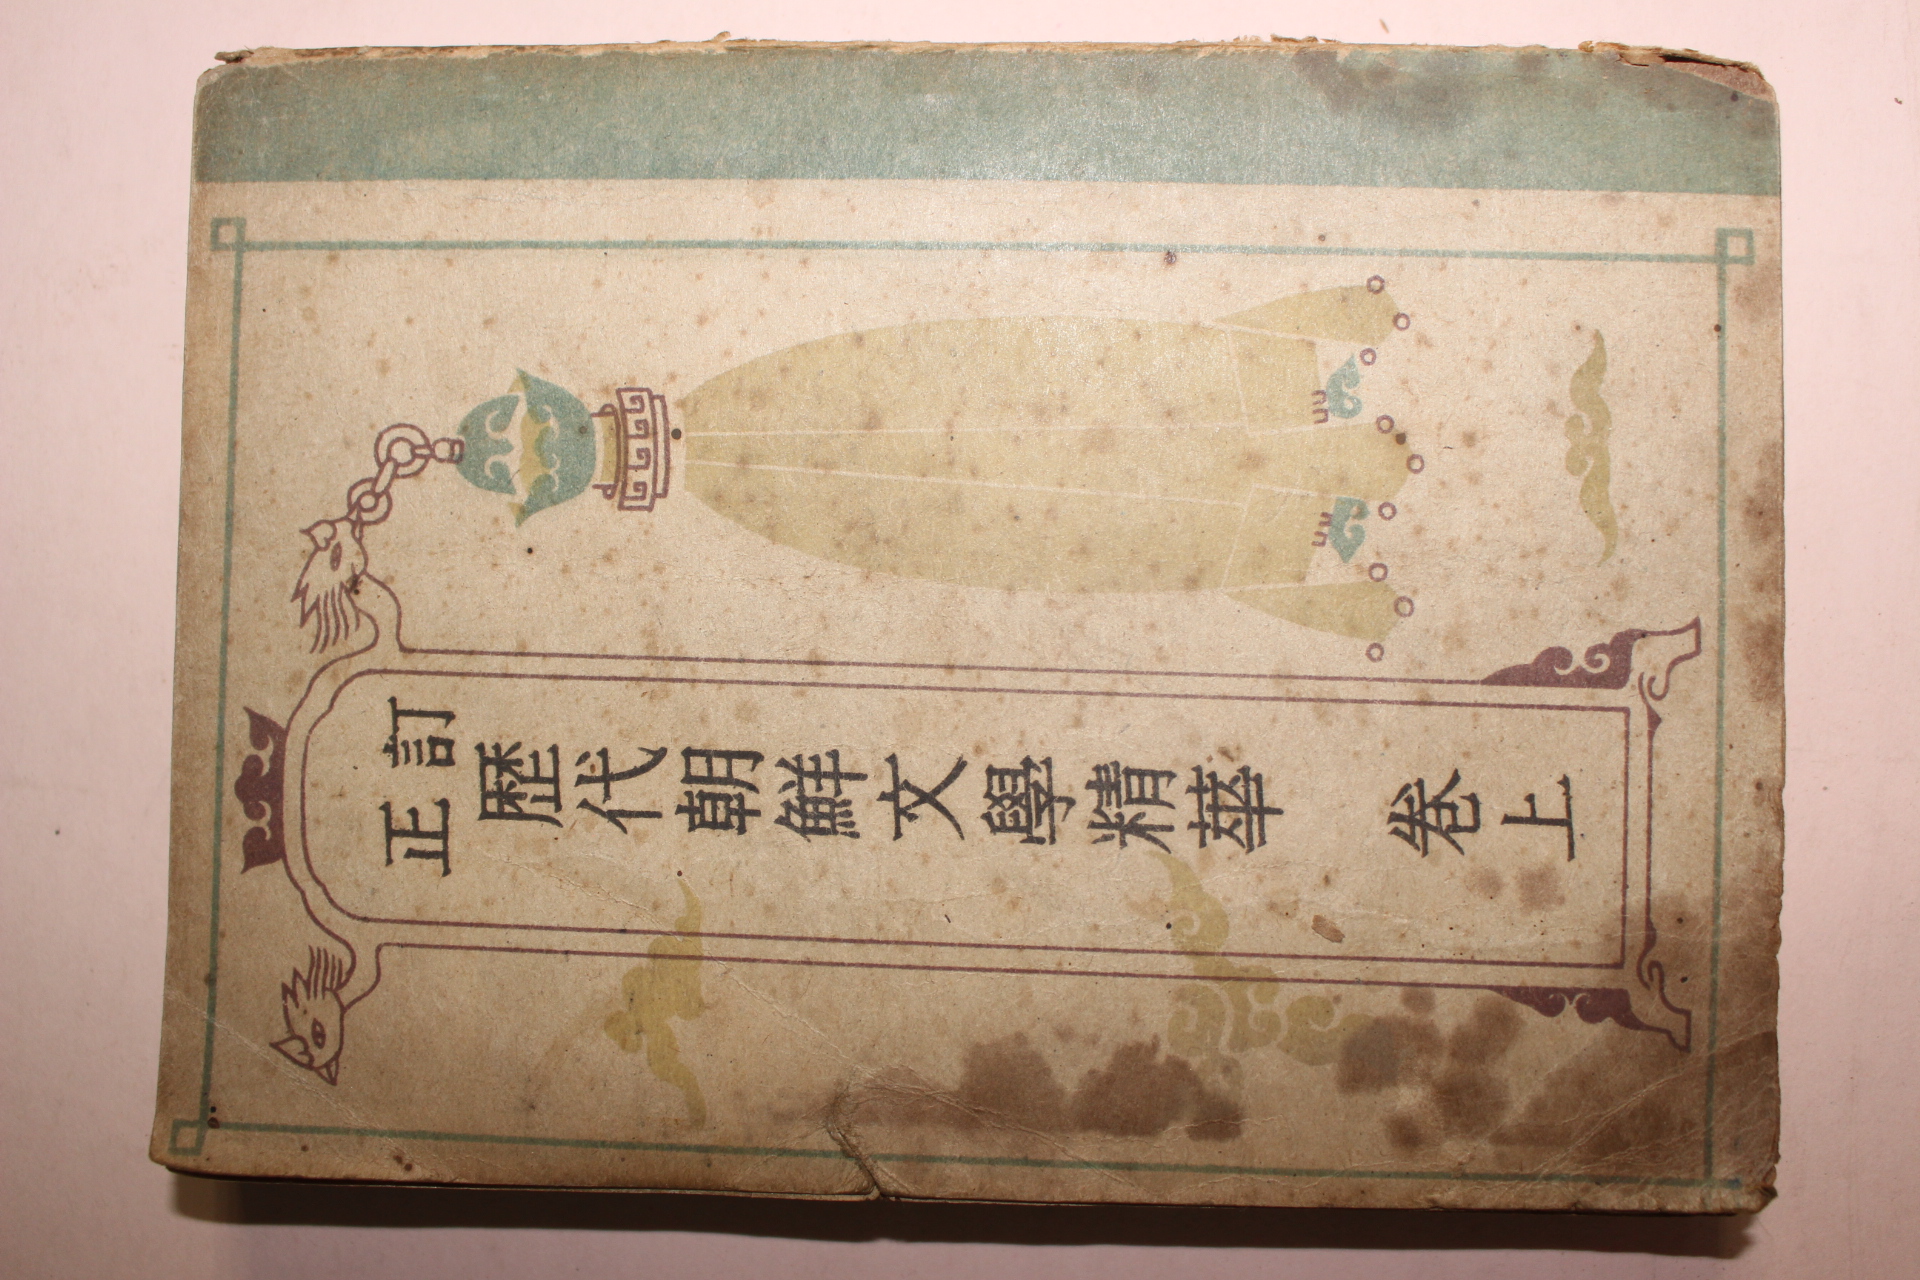 訂正
歷代朝鮮文學精華 卷上